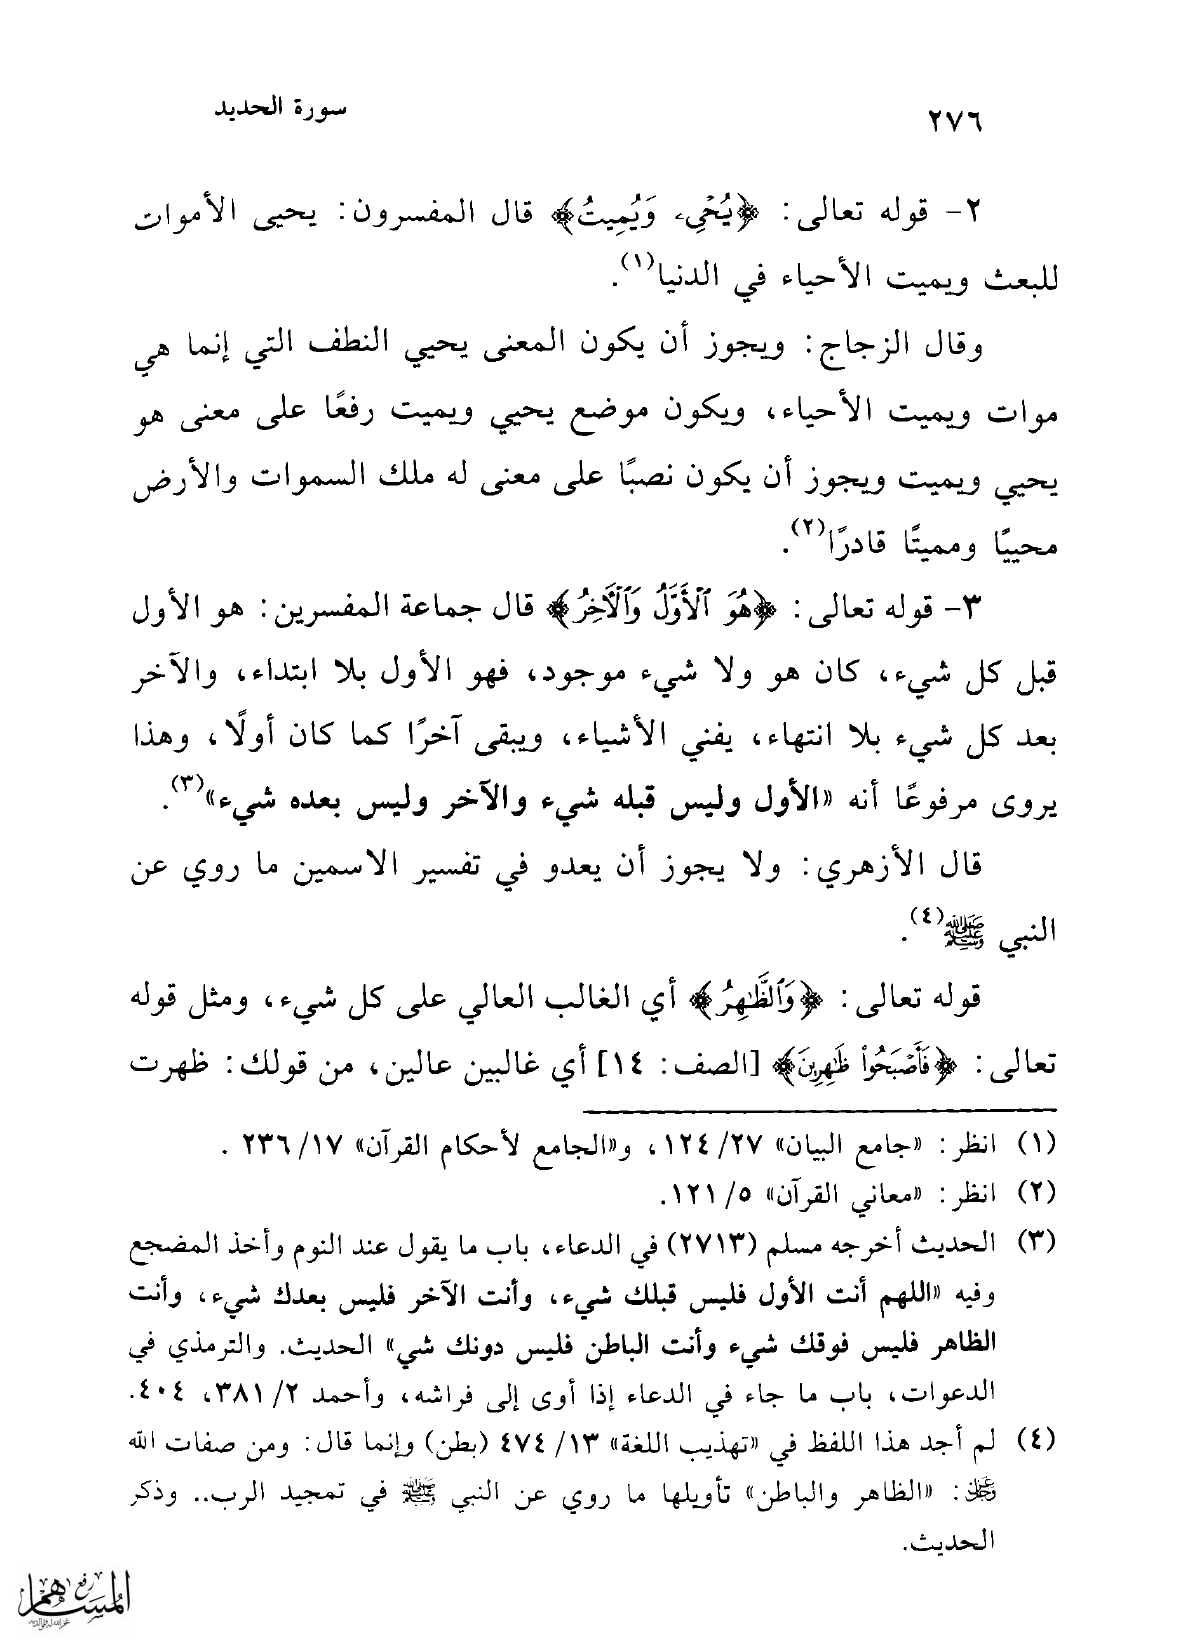 ٢٧٦
سورة الحديد
٢- قوله تعالى: ﴿يُحْيِۦ وَيُمِيتُ﴾ قال المفسرون: يحيى الأموات
للبعث ويميت الأحياء في الدنيا(١).
وقال الزجاج: ويجوز أن يكون المعنى يحيي النطف التي إنما هي
موات ويميت الأحياء، ويكون موضع يحيي ويميت رفعًا على معنى هو
يحيي ويميت ويجوز أن يكون نصبًا على معنى له ملك السموات والأرض
محييًا ومميتًا قادرًا(٢).
٣- قوله تعالى: ﴿هُوَ ٱلْأَوَّلُ وَٱلْآخِرُ﴾ قال جماعة المفسرين: هو الأول
قبل كل شيء، كان هو ولا شيء موجود، فهو الأول بلا ابتداء، والآخر
بعد كل شيء بلا انتهاء، يفني الأشياء، ويبقى آخرًا كما كان أولًا، وهذا
يروى مرفوعًا أنه «الأول وليس قبله شيء والآخر وليس بعده شيء»(٣).
قال الأزهري: ولا يجوز أن يعدو في تفسير الاسمين ما روي عن
النبي ﷺ(٤).
قوله تعالى: ﴿وَٱلظَّٰهِرُ﴾ أي الغالب العالي على كل شيء، ومثل قوله
تعالى: ﴿فَأَصْبَحُوا۟ ظَٰهِرِينَ﴾ [الصف: ١٤] أي غالبين عالين، من قولك: ظهرت
(١) انظر: «جامع البيان» ٢٧/ ١٢٤، و«الجامع لأحكام القرآن» ١٧/ ٢٣٦ .
(٢) انظر: «معاني القرآن» ٥/ ١٢١.
(٣) الحديث أخرجه مسلم (٢٧١٣) في الدعاء، باب ما يقول عند النوم وأخذ المضجع
وفيه «اللهم أنت الأول فليس قبلك شيء، وأنت الآخر فليس بعدك شيء، وأنت
الظاهر فليس فوقك شيء وأنت الباطن فليس دونك شي» الحديث. والترمذي في
الدعوات، باب ما جاء في الدعاء إذا أوى إلى فراشه، وأحمد ٢/ ٣٨١، ٤٠٤.
(٤) لم أجد هذا اللفظ في «تهذيب اللغة» ١٣/ ٤٧٤ (بطن) وإنما قال: ومن صفات الله
عز وجل: «الظاهر والباطن» تأويلها ما روي عن النبي ﷺ في تمجيد الرب.. وذكر
الحديث.
رفع
المساهم